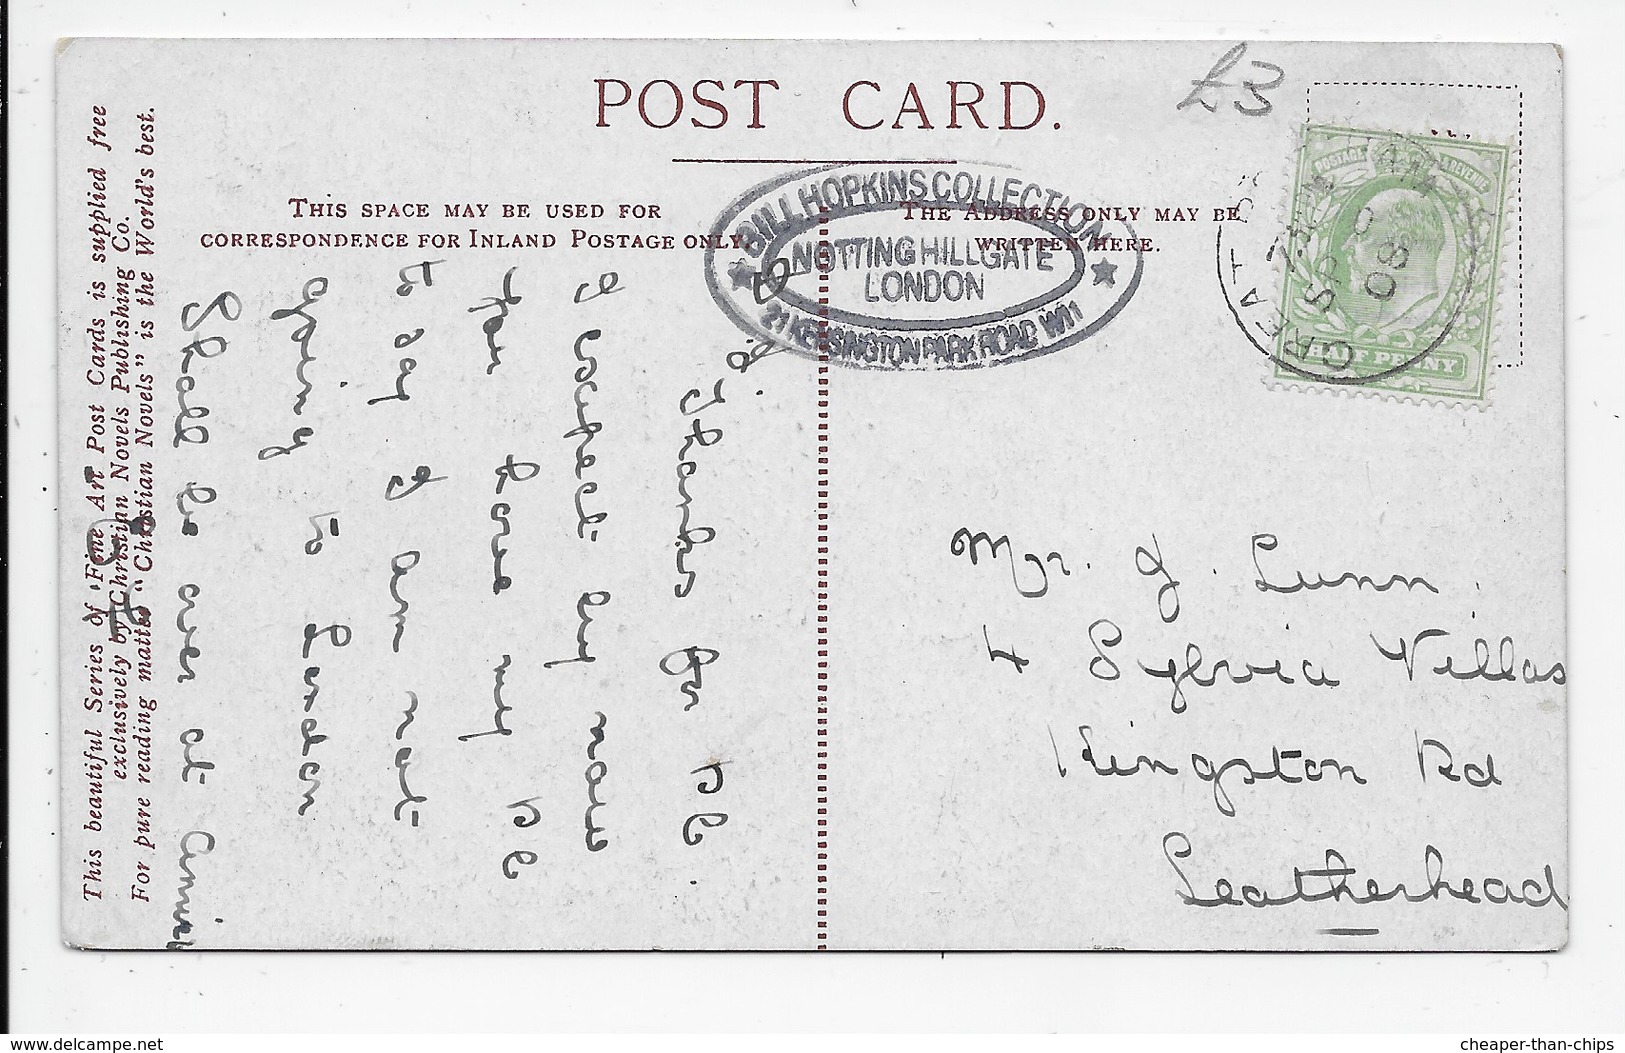 POST CARD.
£3
THIS SPACE MAY BE USED FOR
CORRESPONDENCE FOR INLAND POSTAGE ONLY.
THE ADDRESS ONLY MAY BE
WRITTEN HERE.
BILL HOPKINS COLLECTION
NOTTING HILL GATE
LONDON
21 KENSINGTON PARK ROAD W11
POSTAGE REVENUE
HALF PENNY
GREAT
7.30 PM
SP
08
This beautiful Series of Fine Art Post Cards is supplied free
exclusively by Christian Novels Publishing Co.
For pure reading matter "Christian Novels" is the World's best.
Thanks for P C.
I expect by now
you have my P C
to say I am not
going to London
Shall be over at
Mr. J. Lunn.
4 Sylvia Villas
Kingston Rd
Leatherhead
www.delcampe.net
cheaper-than-chips